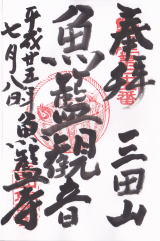 奉拝 三田山
魚籃観音
平成廿五年
七月八日 魚籃寺